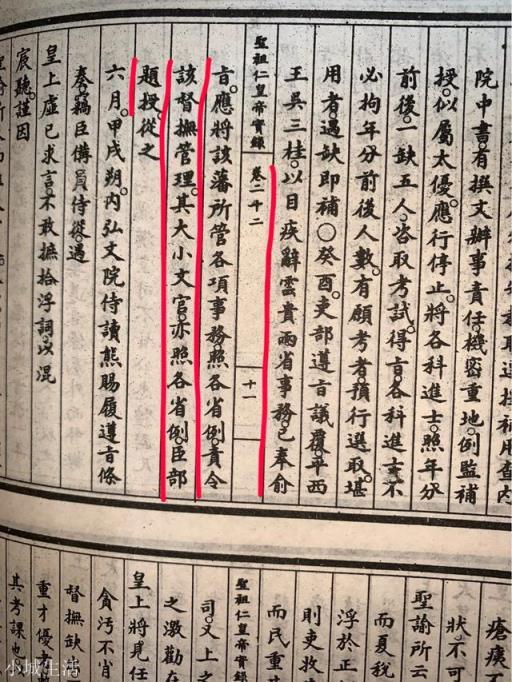 院中書。有撰文辦事責任。機密重地。例監補
授。似屬太優。應行停止。將各科進士。照年分
前後。一缺五人。咨取考試。得旨。各科進士。不
必拘年分前後人數。有願考者。預行選取。堪
用者。遇缺即補〇癸酉。吏部遵旨議覆。平西
王吳三桂。以目疾辭雲貴兩省事務。已奉俞
聖祖仁皇帝實錄 卷二十二 十一
旨。應將該藩所管各項事務。照各省例。責令
該督撫管理。其大小文官。亦照各省例。臣部
題授。從之
六月。甲戌朔。內弘文院侍讀熊賜履遵旨條
奏。竊臣備員侍從。遇
皇上虛己求言。不敢摭拾浮詞。以混
宸聽。謹因
瘡痍
狀。不可
聖諭所云
而夏稅
浮於正
則吏收
而民重
聖祖仁皇帝實錄
司。又上之
之激勸在
皇上將見任
貪汚不肖
督撫缺
重才優者
其考課也
小城生活